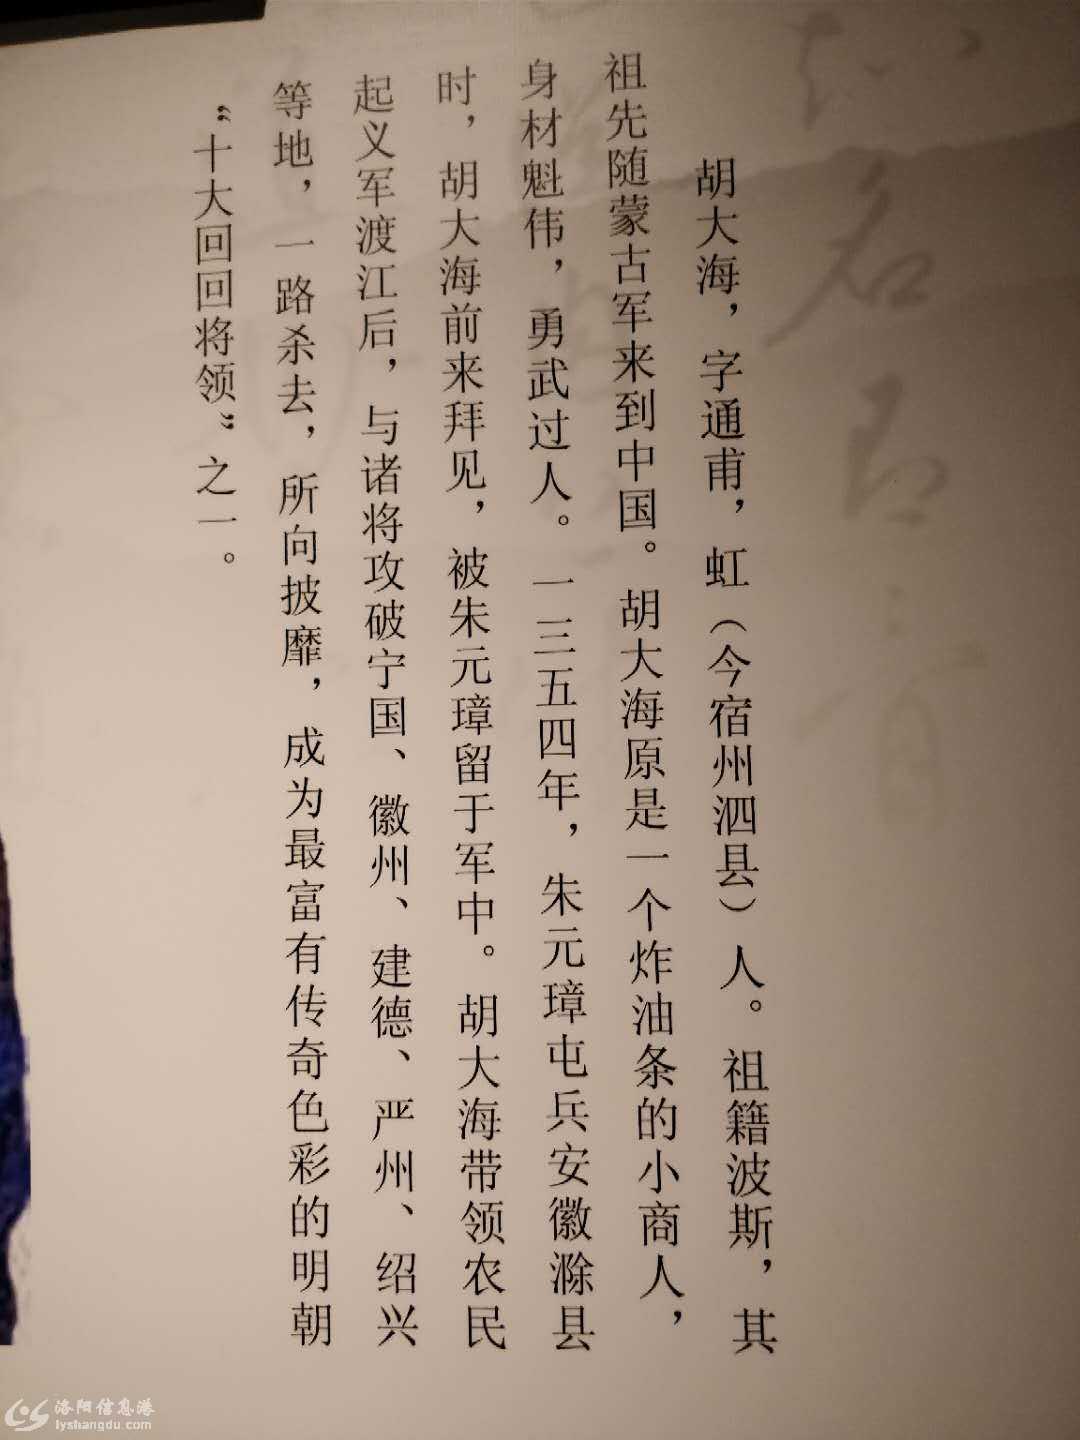 胡大海，字通甫，虹（今宿州泗县）人。祖籍波斯，其
祖先随蒙古军来到中国。胡大海原是一个炸油条的小商人，
身材魁伟，勇武过人。一三五四年，朱元璋屯兵安徽滁县
时，胡大海前来拜见，被朱元璋留于军中。胡大海带领农民
起义军渡江后，与诸将攻破宁国、徽州、建德、严州、绍兴
等地，一路杀去，所向披靡，成为最富有传奇色彩的明朝
“十大回回将领”之一。
洛阳信息港
lyshangdu.com